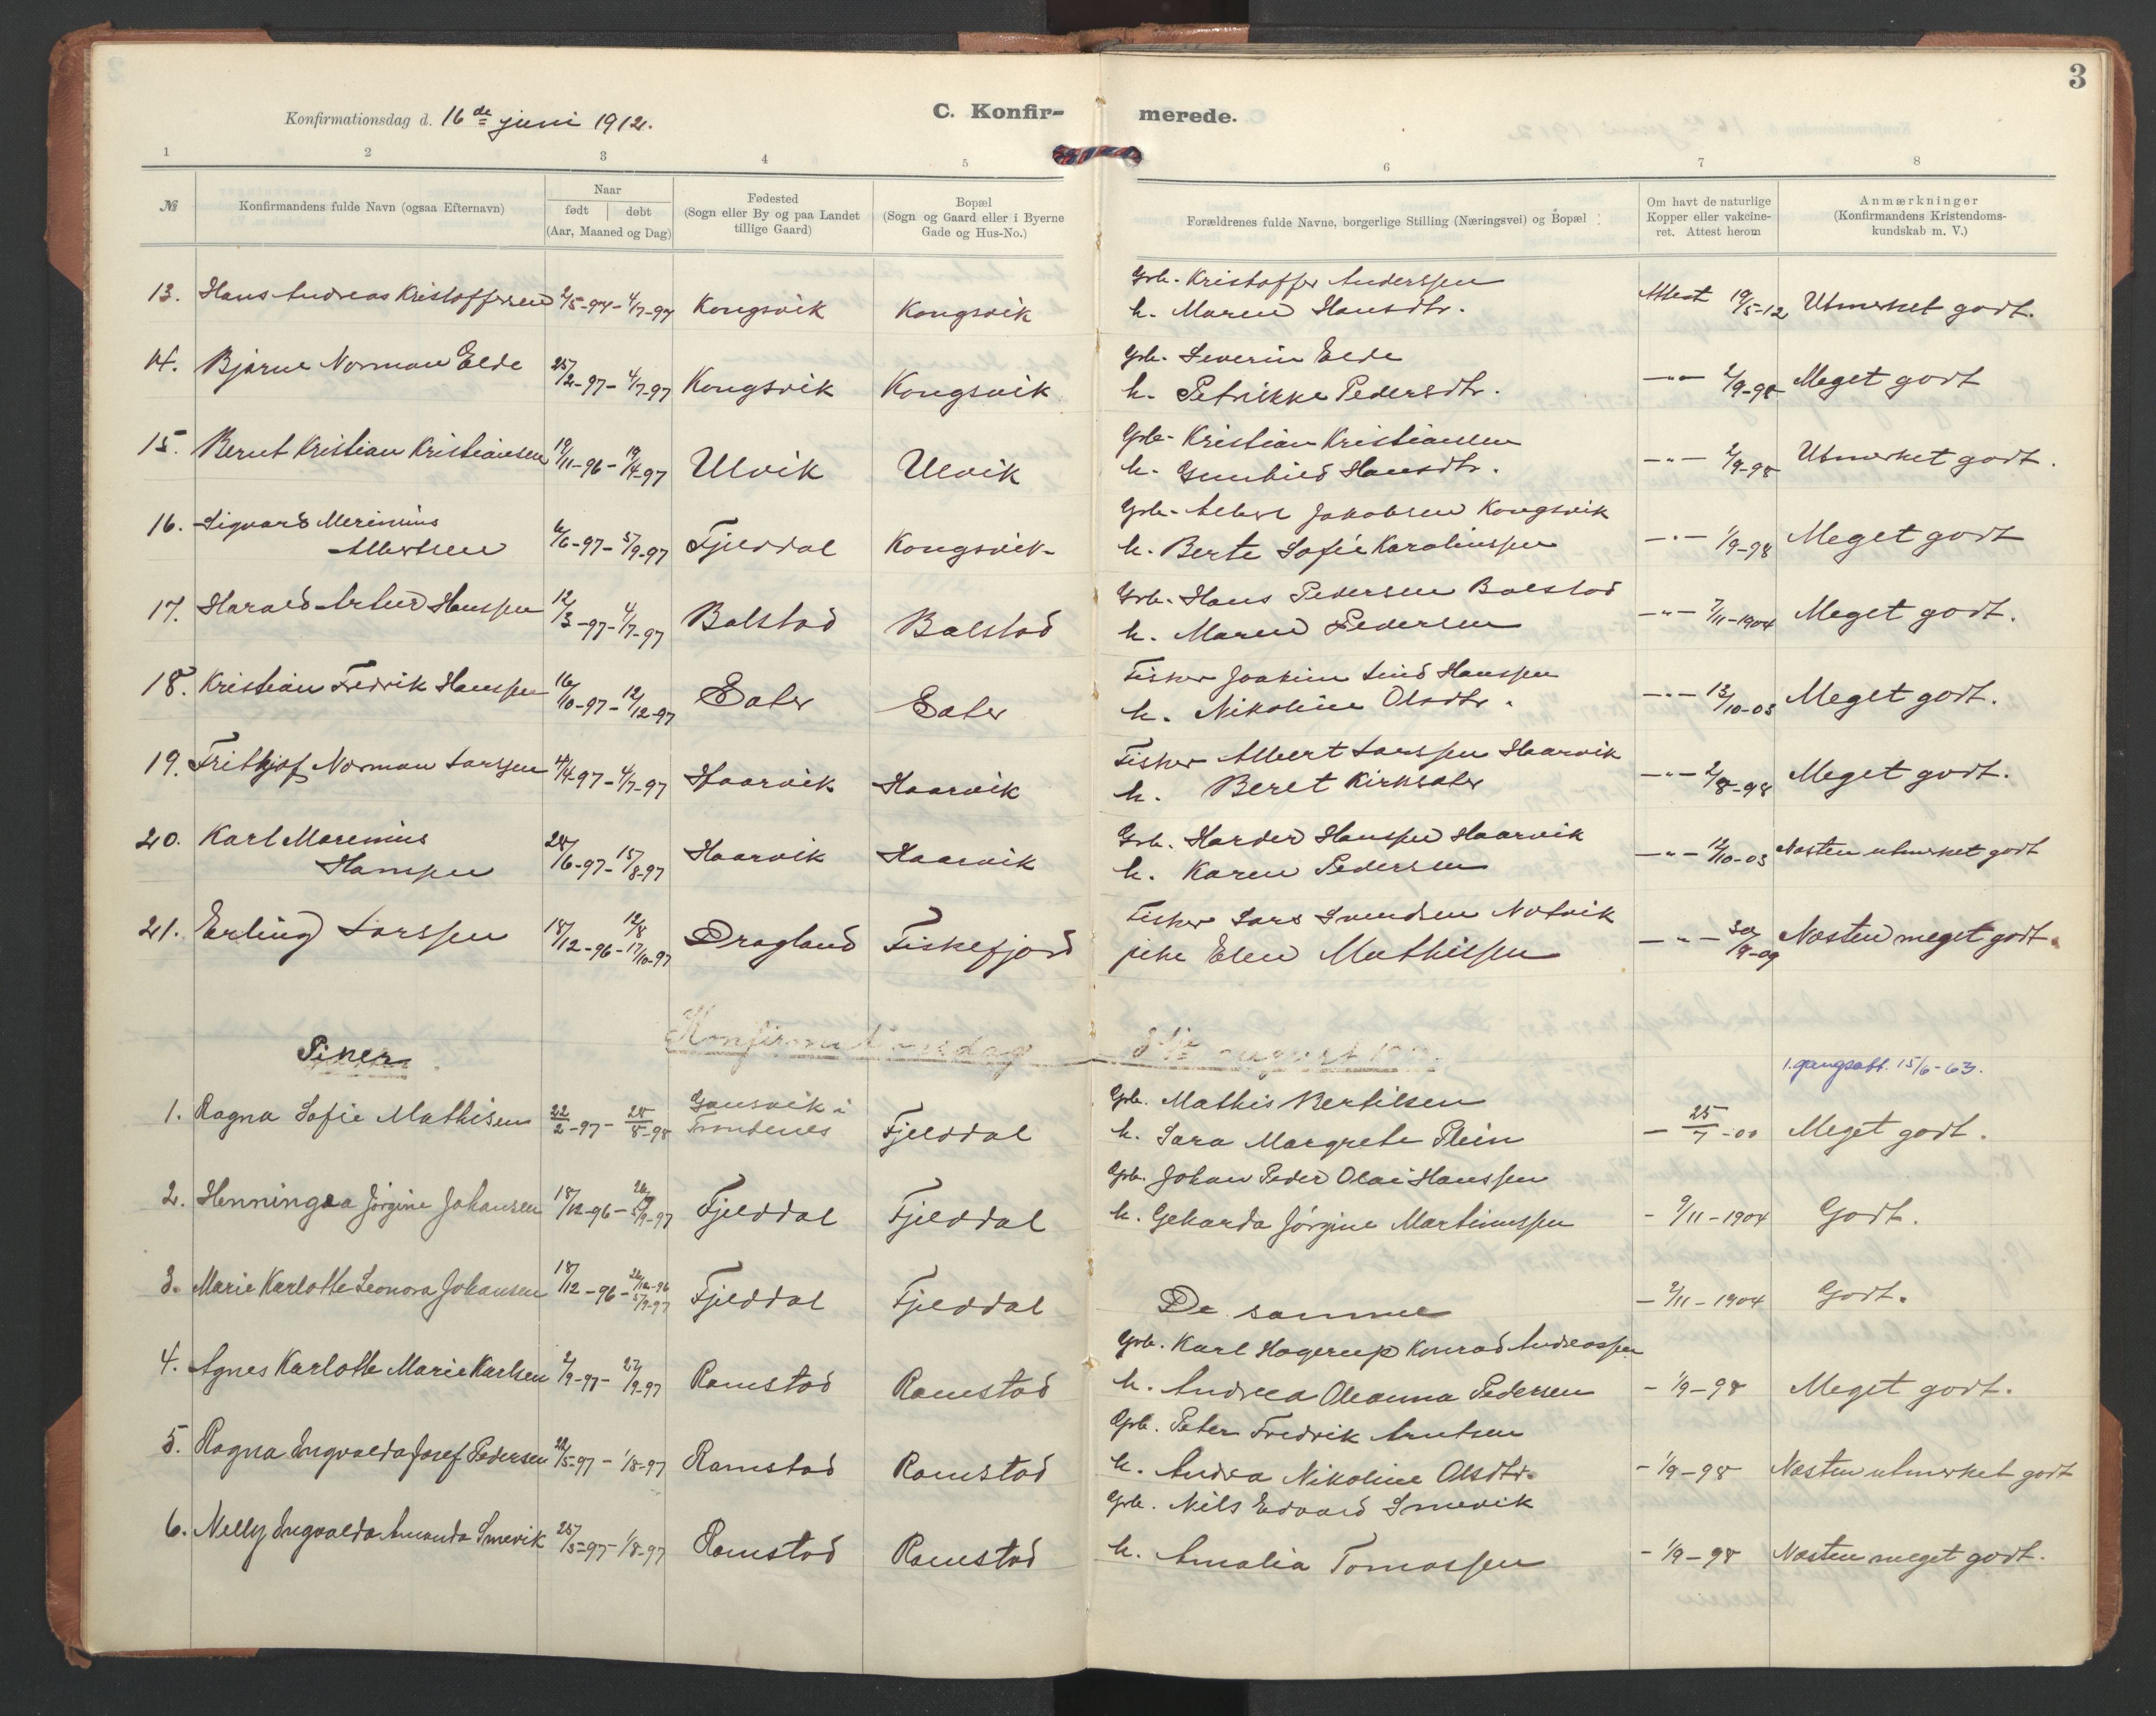 3
Konfirmationsdag d. 16de juni 1912.
C. Konfir-merede.
1 2 3 4 5 6 7 8
№
Konfirmandens fulde Navn (ogsaa Efternavn)
Naar
født | døbt
(Aar, Maaned og Dag)
Fødested
(Sogn eller By og paa Landet
tillige Gaard)
Bopæl
(Sogn og Gaard eller i Byerne
Gade og Hus-No.)
Forældrenes fulde Navne, borgerlige Stilling (Næringsvei) og Bopæl
Om havt de naturlige
Kopper eller vakcine-
ret. Attest herom
Anmærkninger
(Konfirmandens Kristendoms-
kundskab m. V.)
Grb. Kristoffer Anderssen
13. Hans Andreas Kristoffersen 2/5-97 - 4/7-97 Kongsvik Kongsvik h. Maren Hansdtr. Attest 19/5-12 Utmerket godt.
Grb. Severin Elde
14. Bjarne Norman Elde 25/2-97 - 4/7-97 Kongsvik Kongsvik h. Petrikke Pedersdtr. -"- 2/9-98 Meget godt
Grb. Kristian Kristiansen
15. Bernt Kristian Kristiansen 19/11-96 - 19/4-97 Ulvik Ulvik h. Gunhild Hansdtr. -"- 2/9-98 Utmerket godt.
Grb. Albert Jakobsen Kongsvik
16. Sigvard Merinius
Albertsen 6/6-97 - 5/9-97 Fjelddal Kongsvik h. Berte Sofie Karolinssen -"- 1/9-98 Meget godt
Grb. Hans Pedersen Balstad
17. Harald Artur Hanssen 12/3-97 - 4/7-97 Balstad Balstad h. Maren Pedersen -"- 7/11-1904 Meget godt.
Fisker Joakim Lind Hanssen
18. Kristian Fredrik Hanssen 16/10-97 - 12/12-97 Sater Sater h. Nikoline Olsdtr. -"- 13/10-03 Meget godt.
Fisker Albert Larssen Haarvik
19. Frithjof Norman Larssen 4/4-97 - 4/7-97 Haarvik Haarvik h. Beret Kirksater -"- 2/8-98 Meget godt.
Grb. Harder Hanssen Haarvik
20. Karl Marenius
Hanssen 28/6-97 - 15/8-97 Haarvik Haarvik h. Karen Pedersen -"- 12/10-03 Næsten utmerket godt
Fisker Lars Svendsen Notvik
21. Erling Larssen 18/12-96 - 12/8 17/10-97 Dragland Fiskefjord pike Elen Mathissen -"- 30/9-09 Næsten meget godt.
Piker.
Konfirmationsdag august
1.gangsatt. 15/6-63.
Grb. Mathis Bertilsen
1. Ragna Sofie Mathisen 22/2-97 - 28/8-98 Gausvik i
Trondenes Fjelddal h. Sara Margrete Plein - 25/7-00 Meget godt.
Grb. Johan Peder Olai Hanssen
2. Henningsa Jørgine Johansen 18/12-96 - 5/9-97 Fjelddal Fjelddal h. Geharda Jørgine Martinussen - 9/11-1904 Godt.
3. Marie Karlotte Leonora Johansen 18/12-96 - 26/12-96 5/9-97 Fjelddal Fjelddal De samme - 9/11-1904 Godt.
Grb. Karl Hagerup Konrad Andreassen
4. Agnes Karlotte Marie Karlsen 2/9-97 - 27/9-97 Ramstad Ramstad h. Andrea Oleanna Pedersen - 1/9-98 Meget godt.
Grb. Peter Fredrik Arntsen
5. Ragna Ingvalda Josef Pedersen 22/5-97 - 1/8-97 Ramstad Ramstad h. Andrea Nikoline Olsdtr. - 1/9-98 Næsten utmerket godt
Grb. Nils Edvard Smevik
6. Nelly Ingvalda Amanda Smevik 25/5-97 - 1/8-97 Ramstad Ramstad h. Amalia Tomassen - 1/9-98 Næsten meget godt.